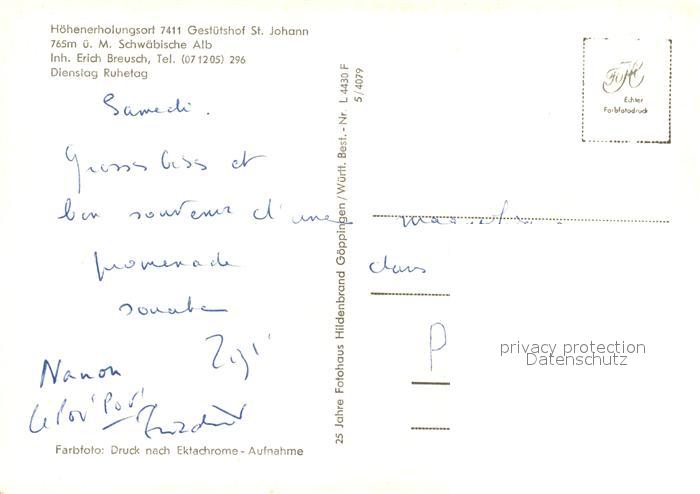 Höhenerholungsort 7411 Gestütshof St. Johann
765m ü. M. Schwäbische Alb
Inh. Erich Breusch, Tel. (07 12 05) 296
Dienstag Ruhetag
Samedi.
Grosses bises et
bon souvenir d'une
promenade dans
Zizi
Nanon
25 Jahre Fotohaus Hildenbrand Göppingen/Württ. Best.-Nr. L 4430 F
5/4079
Echter
Farbfotodruck
P
privacy protection
Datenschutz
Farbfoto: Druck nach Ektachrome-Aufnahme